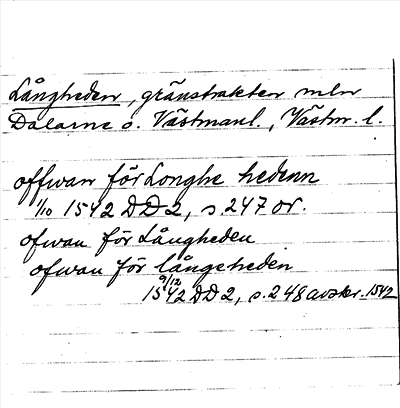 Långheden, gränstrakten mln
Dalarne o. Västmanl., Västm. l.
offwan för Longhe hedenn
1/10 1542 DD2, s. 247 or.
ofwan för Långheden
ofwan för långeheden
9/12 1542 DD2, s. 248 avskr. 1542